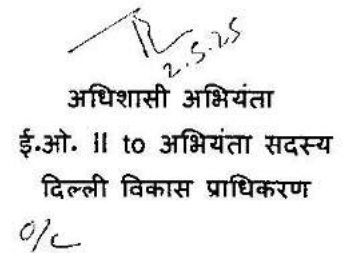 2.5.25
अधिशासी अभियंता
ई.ओ. II to अभियंता सदस्य
दिल्ली विकास प्राधिकरण
O/C